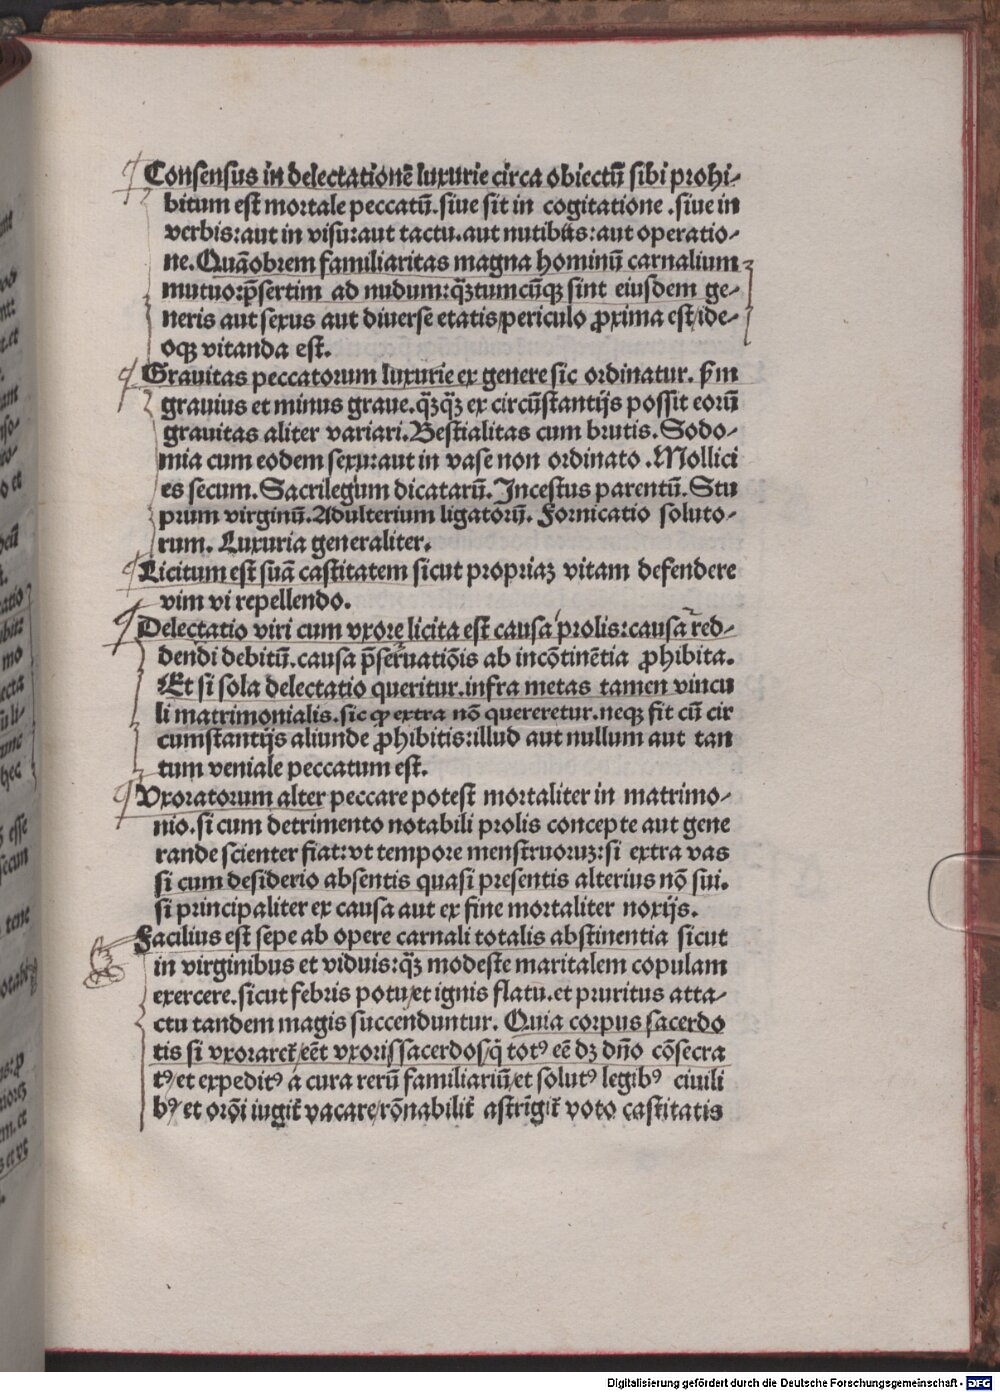 Consensus in delectationē luxurie circa obiectū sibi prohi-
bitum est mortale peccatū.siue sit in cogitatione .siue in
verbis:aut in visu:aut tactu.aut nutibus:aut operatio-
ne.Quāobrem familiaritas magna hominū carnalium
mutuo:p̄sertim ad nudum:q̄ꝫtumcūqꝫ sint eiusdem ge-
neris aut sexus aut diuerse etatis/periculo ꝓxima est/ide-
oqꝫ vitanda est.
Grauitas peccatorum luxurie ex genere sic ordinatur. ẜm
grauius et minus graue.q̄ꝫqꝫ̄ ex circūstantijs possit eorū
grauitas aliter variari.Bestialitas cum brutis.Sodo-
mia cum eodem sexu:aut in vase non ordinato .Mollici
es secum.Sacrilegium dicatarū.Incestus parentū.Stu
prum virginū.Adulterium ligatorū. Fornicatio soluto-
rum. Luxuria generaliter.
Licitum est suā castitatem sicut propriaꝫ vitam defendere
vim vi repellendo.
Delectatio viri cum vxore licita est causa prolis:causa red-
dendi debitū.causa p̄seruatiōis ab incōtinētia ꝓhibita.
Et si sola delectatio queritur.infra metas tamen vincu
li matrimonialis.sic ꝙ extra nō quereretur.neqꝫ fit cū cir
cumstantijs aliunde ꝓhibitis:illud aut nullum aut tan
tum veniale peccatum est.
Vxoratorum alter peccare potest mortaliter in matrimo-
nio.si cum detrimento notabili prolis concepte aut gene
rande scienter fiat:vt tempore menstruoruꝫ:si extra vas
si cum desiderio absentis quasi presentis alterius nō sui.
si principaliter ex causa aut ex fine mortaliter noxijs.
Facilius est sepe ab opere carnali totalis abstinentia sicut
in virginibus et viduis:q̄ꝫ modeste maritalem copulam
exercere.sicut febris potu/et ignis flatu.et pruritus atta-
ctu tandem magis succenduntur. Quia corpus sacerdo
tis si vxoraret̄/eēt vxoris/sacerdos/q̄ totꝰ eē dꝫ dn̄o cōsecra
tꝰ/et expeditꝰ a cura rerū familiariū/et solutꝰ legibꝰ ciuili
bꝰ/et orōi iugit̄ vacare/rōnabilit̄ astrīgit̄ voto castitatis
Digitalisierung gefördert durch die Deutsche Forschungsgemeinschaft - DFG